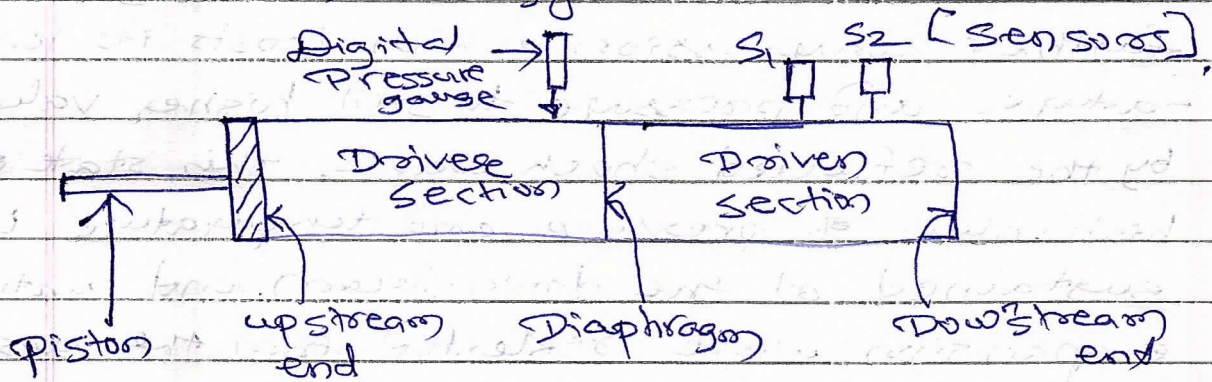 Digital
Pressure
gauge
S1
S2 [Sensors].
Driver
section
Driven
section
Piston
upstream
end
Diaphragm
Downstream
end